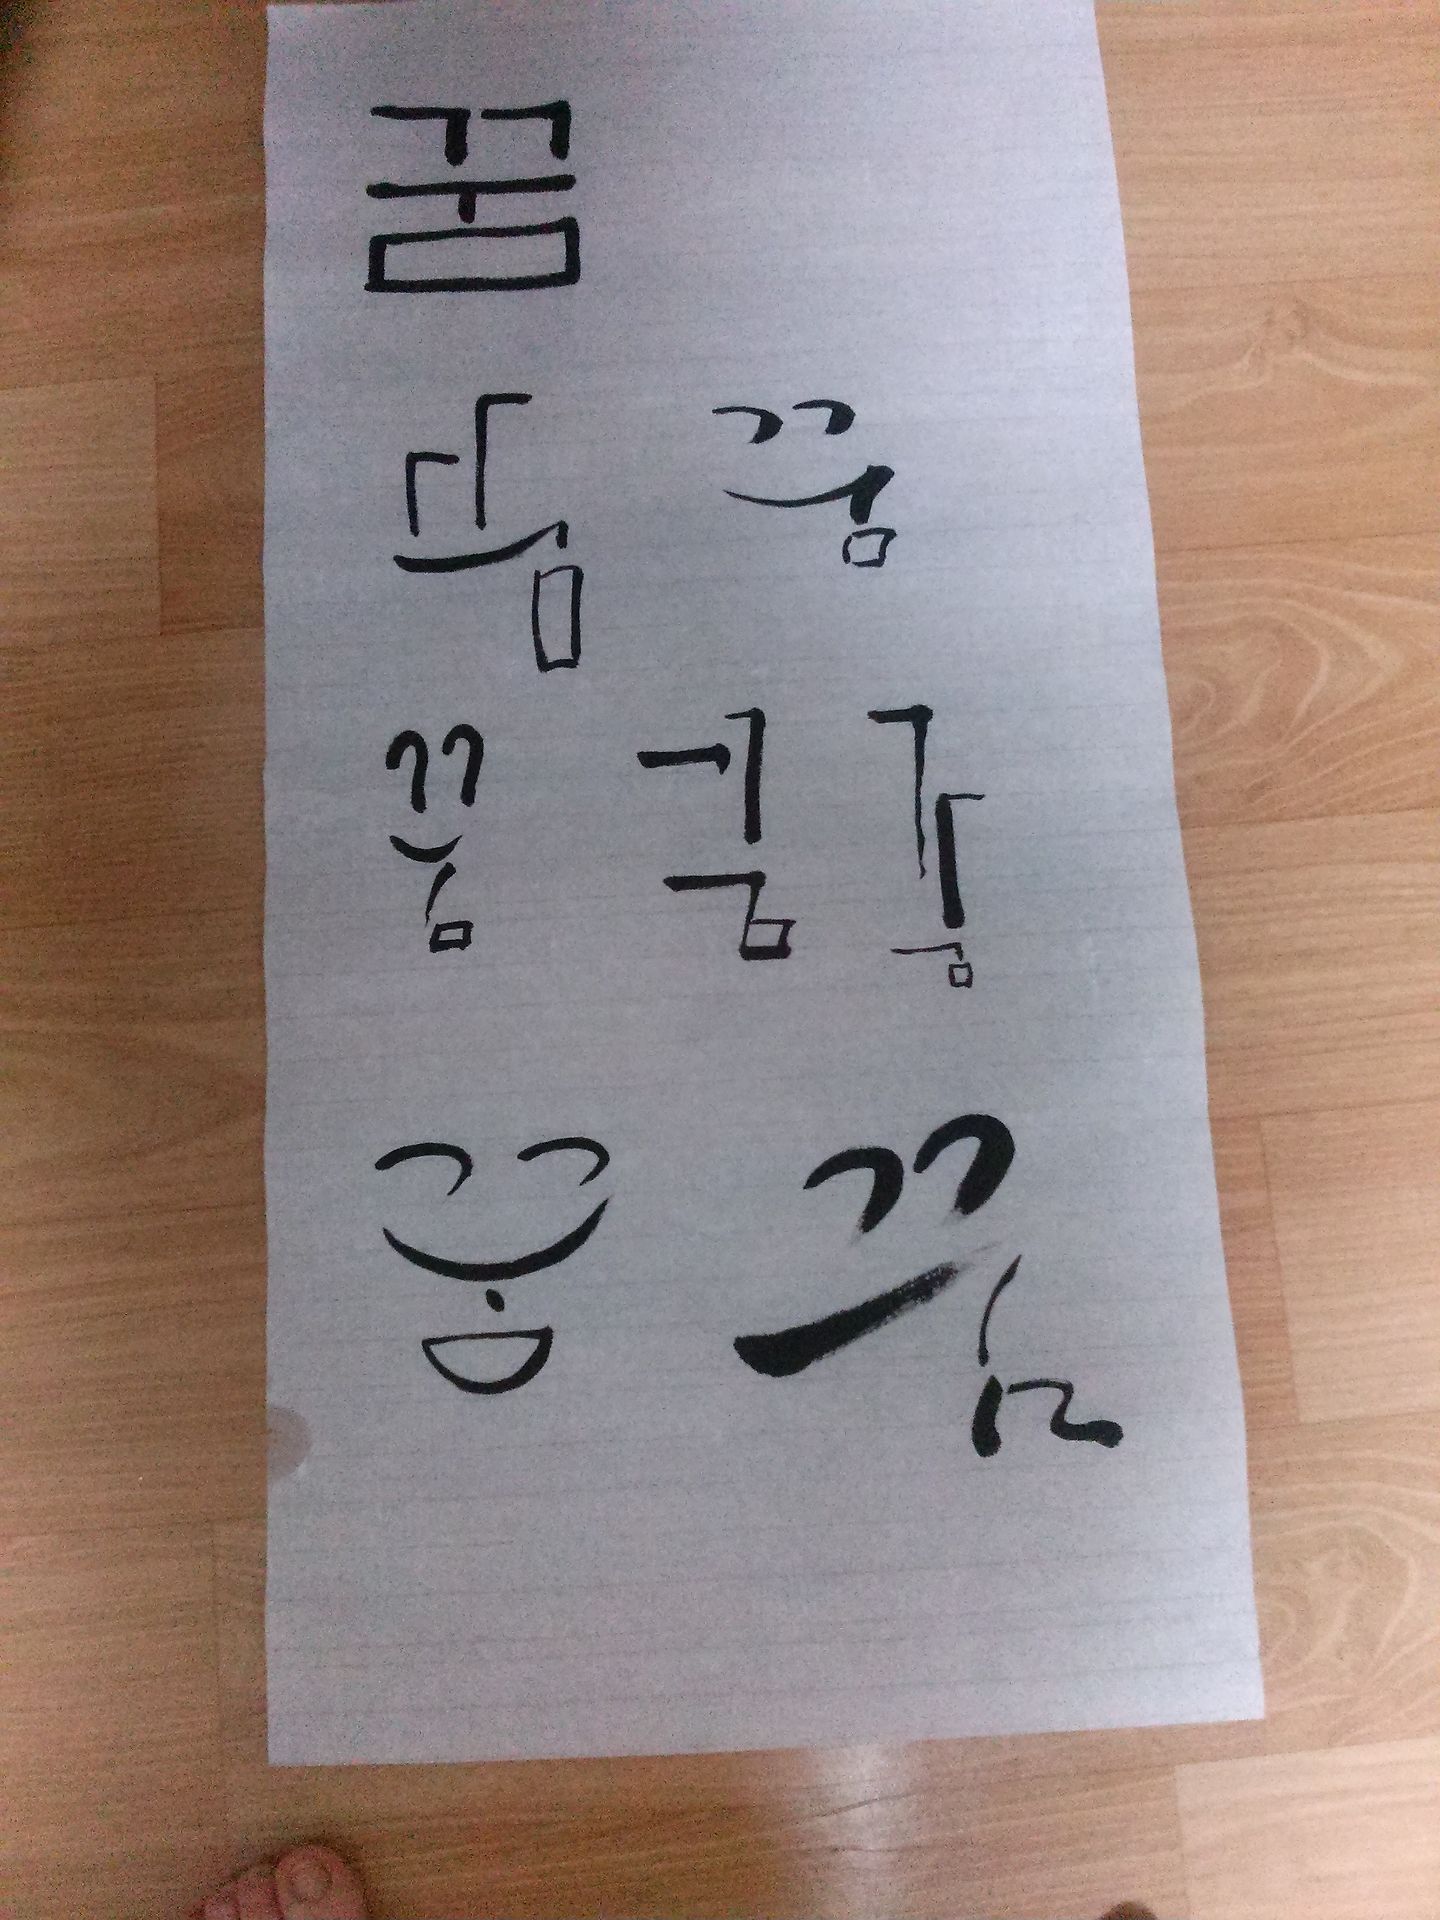 꿈
꿈 꿈
꿈 꿈 꿈
꿈 꿈